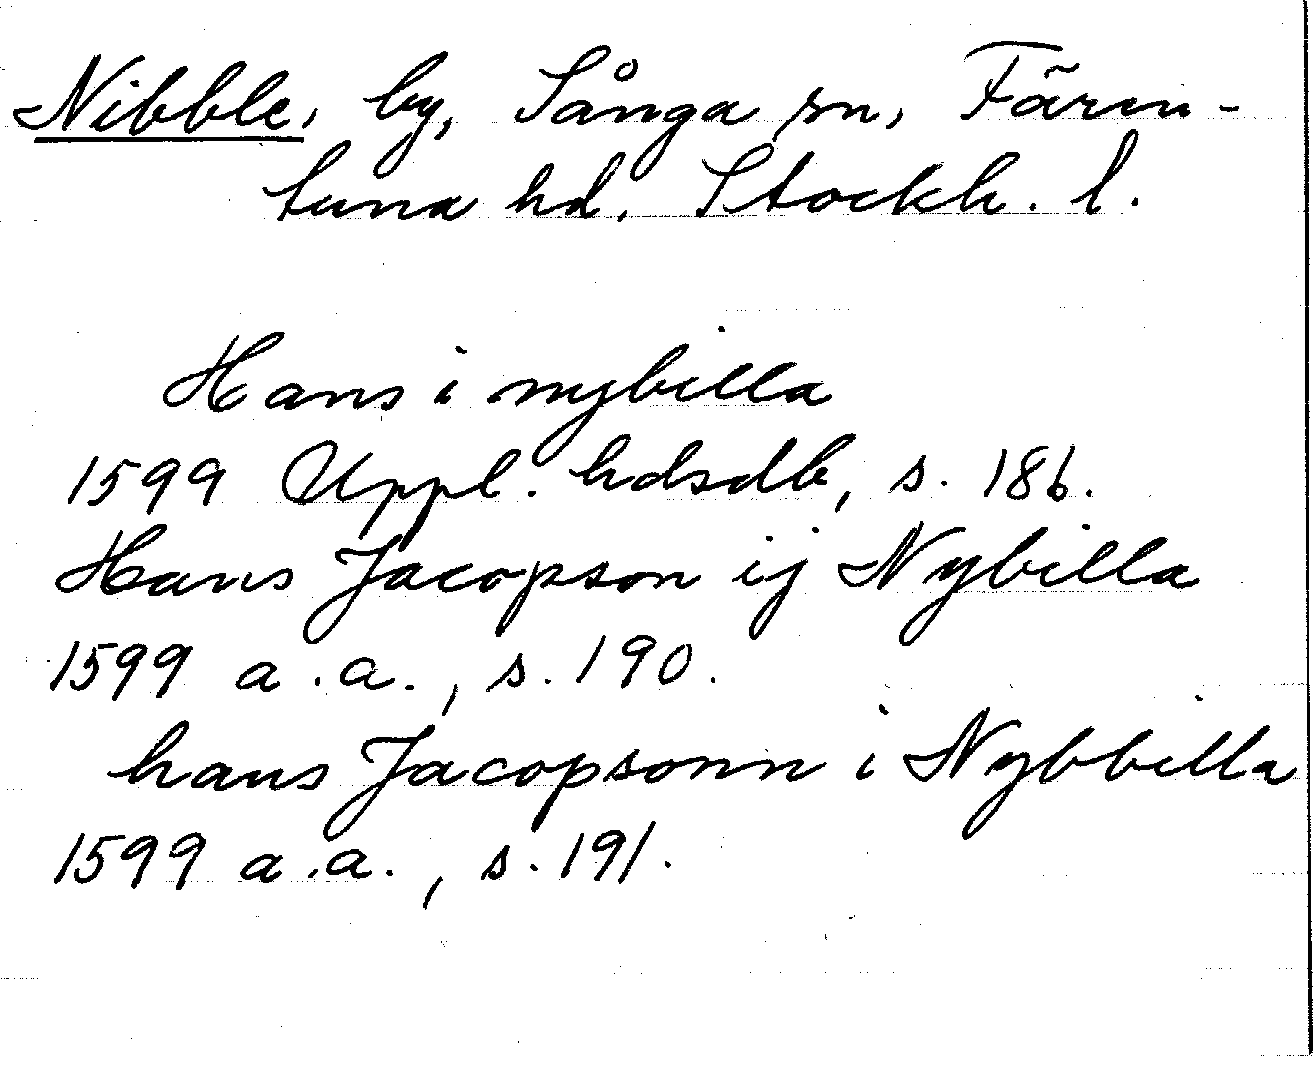 Nibble, by, Sånga sn, Fären-
tuna hd, Stockh. l.
Hans i nybilla
1599 Uppl. hdsdb, s. 186.
Hans Jacopson ij Nybilla
1599 a.a., s. 190.
hans Jacopsonn i Nybbilla
1599 a.a., s. 191.